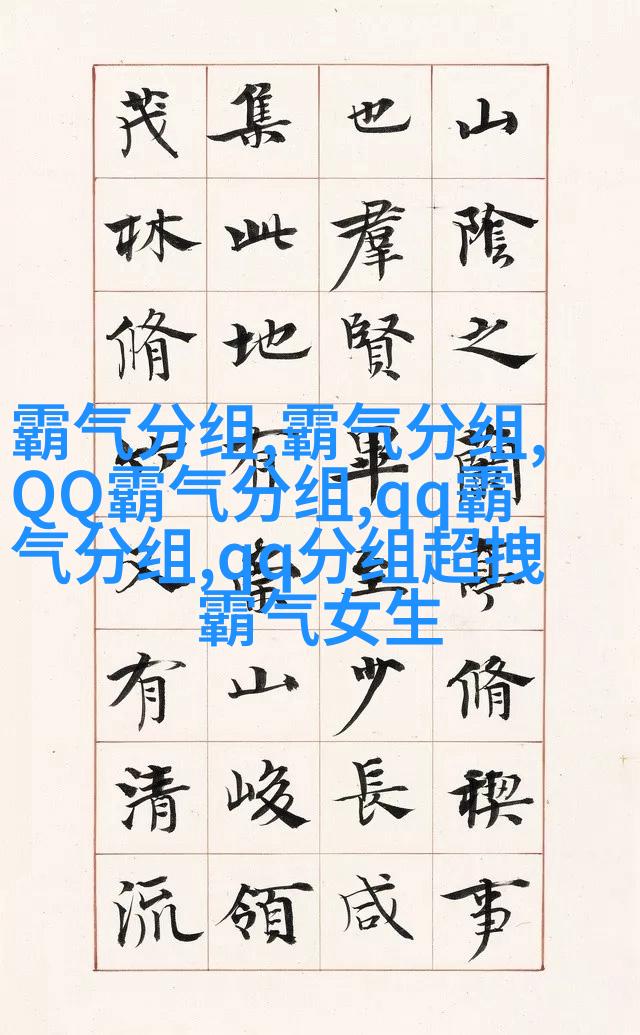 山陰之蘭亭脩稧事
也羣賢畢至少長咸
集此地有崇山峻領
茂林脩竹又有清流
霸气分组,霸气分组,
QQ霸气分组,qq霸
气分组,qq分组超拽
霸气女生